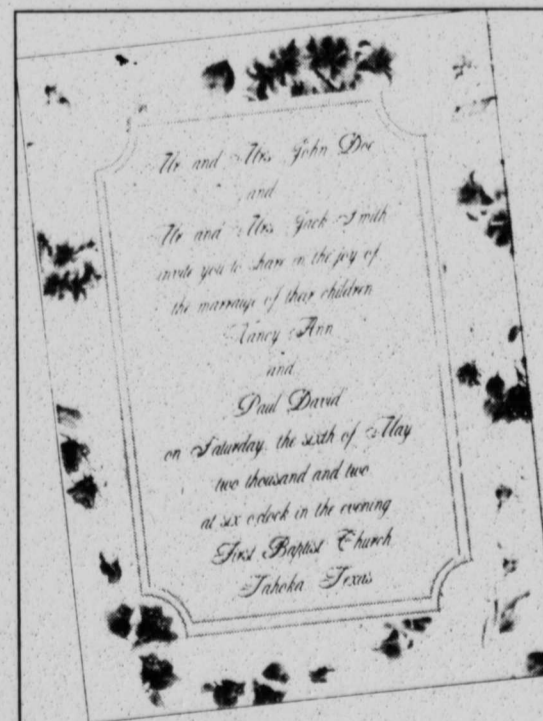 Mr and Mrs John Doe
and
Mr and Mrs Jack Smith
invite you to share in the joy of
the marraige of their children
Nancy Ann
and
Paul David
on Saturday, the sixth of May
two thousand and two
at six o'clock in the evening
First Baptist Church
Tahoka Texas